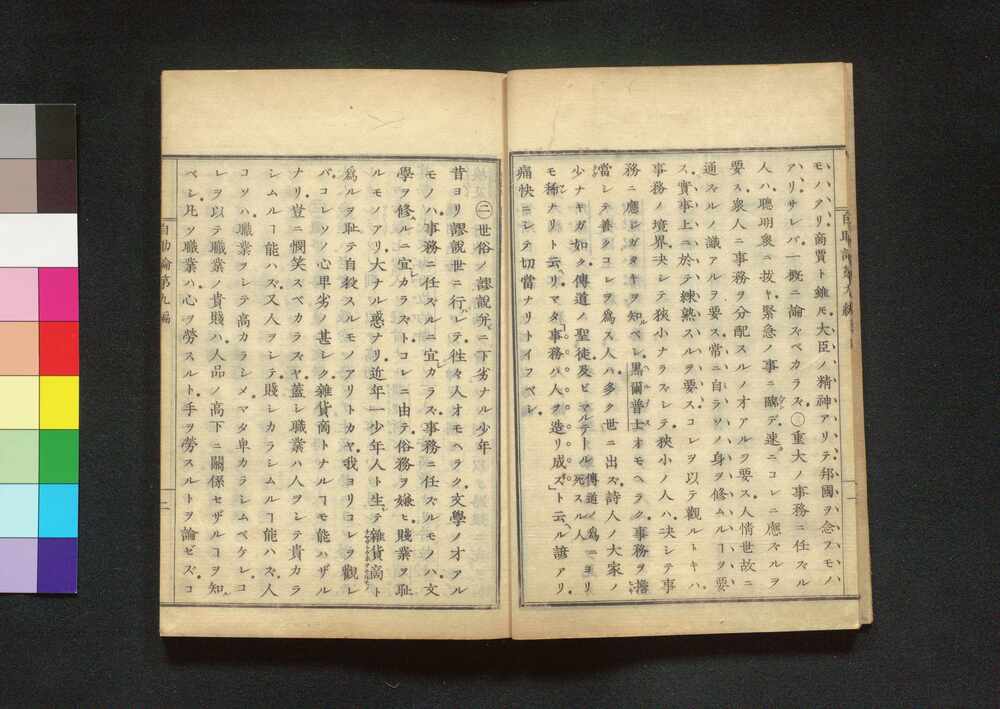 自助論第九編
モノアリ。商賈ト雖モ。大臣ノ精神アリテ。邦國ヲ念フモノ
アリ。サレバ一概ニ論ズベカラズ。〇重大ノ事務ニ任ズル
人ハ。聰明衆ニ拔キ。緊急ノ事ニ臨デ。速ニコレニ應ズルヲ
要ス。衆人ニ事務ヲ分配スルノオアルヲ要ス。人情世故ニ
通ズルノ識アルヲ要ス。常ニ自ラソノ身ヲ修ムルヿヲ要
ス。實事上ニ於テ練熟スルヲ要ス。コレヲ以テ觀ルトキハ。
事務ノ境界。决シテ狹小ナラズシテ。狹小ノ人ハ。决シテ事
務ニ應ジガタキヲ知ベシ。黑爾普士オモヘラク。事務ヲ擔
當シテ。善クコレヲ爲ス人ハ。多ク世ニ出ズ。詩人ノ大家ノ
少ナキガ如ク。傳道ノ聖徒及ビマルテール 傳道ノ爲ニヨリ死スル人
モ稀ナリト云リ。マタ「事務ハ人ヲ造リ成ズ」ト云ヘル諺アリ。
痛快ニシテ切當ナリトイフベシ。
㊁世俗ノ謬說。幷ニ下劣ナル少年
昔ヨリ謬說世ニ行ハレテ。往々人オモヘラク。文學ノオアル
モノハ。事務ニ任ズルニ宜カラズ。事務ニ任ズルモノハ。文
學ヲ修ルニ宜カラズト。コレニ由テ俗務ヲ嫌ヒ。賤業ヲ恥
ルモノアリ。大ナル惑ナリ。近年一少年人ト生レテ。雜貨商ト
爲ルヲ恥テ。自殺スルモノアリトカヤ。我ヨリコレヲ觀レ
バ。コレソノ心卑劣ノ甚シク。雜貨商トナルヿモ能ハザル
ナリ。豈ニ憫笑スベカラズヤ。蓋シ職業ハ。人ヲシテ貴カラ
シムルヿ能ハズ。又人ヲシテ賤シカラシムルヿ能ハズ。人
コソハ職業ヲシテ高カラシメ。マタ卑カラシムベケレ。コ
レヲ以テ職業ノ貴賤ハ。人品ノ高下ニ關係セザルヿヲ知
ベシ。凡ソ職業ハ。心ヲ勞スルト。手ヲ勞スルトヲ論ゼズ。コ
自助論第九編
二